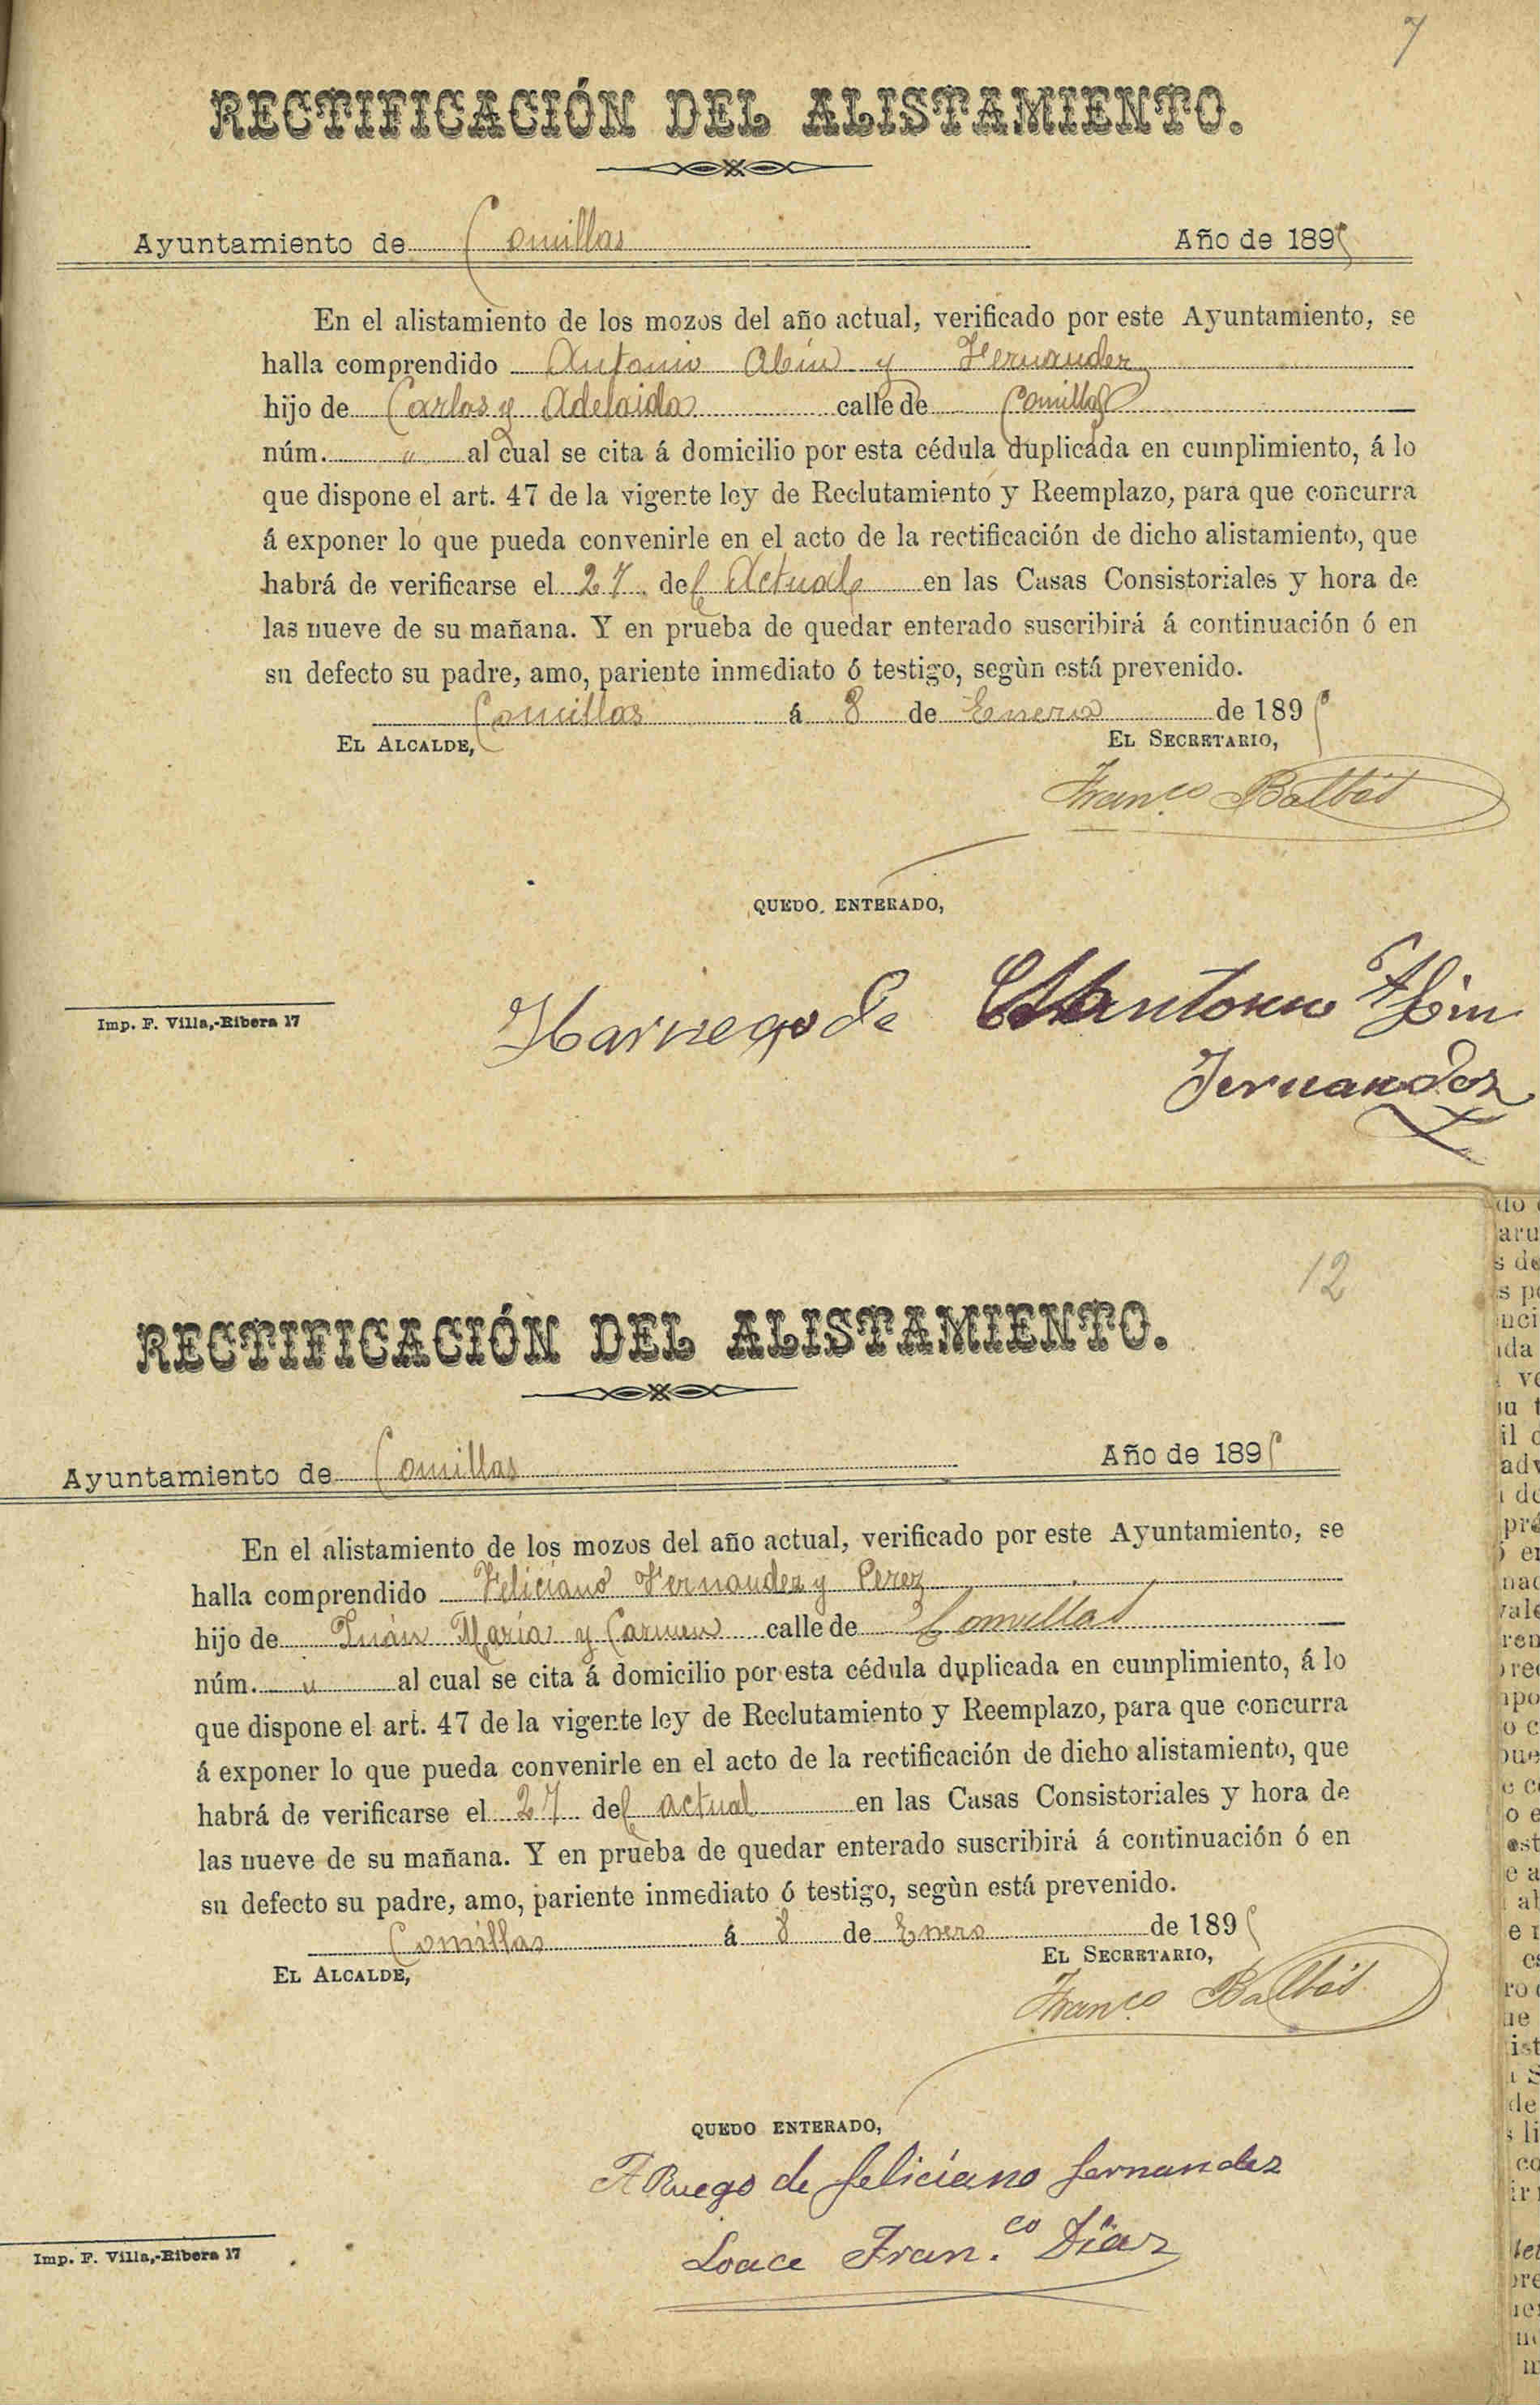 7
RECTIFICACIÓN DEL ALISTAMIENTO.
Ayuntamiento de Comillas Año de 1895
En el alistamiento de los mozos del año actual, verificado por este Ayuntamiento, se
halla comprendido Antonio Abin y Hernandez
hijo de Carlos y Adelaida calle de Comillas
núm. " al cual se cita á domicilio por esta cédula duplicada en cumplimiento, á lo
que dispone el art. 47 de la vigente ley de Reclutamiento y Reemplazo, para que concurra
á exponer lo que pueda convenirle en el acto de la rectificación de dicho alistamiento, que
habrá de verificarse el 27 del Actual en las Casas Consistoriales y hora de
las nueve de su mañana. Y en prueba de quedar enterado suscribirá á continuación ó en
su defecto su padre, amo, pariente inmediato ó testigo, segùn está prevenido.
Comillas á 8 de Enero de 1895
EL ALCALDE, EL SECRETARIO,
Franco Balbás
QUEDO ENTERADO,
de Antonio Abin
Fernandez
Imp. F. Villa,-Ribera 17
12
RECTIFICACIÓN DEL ALISTAMIENTO.
Ayuntamiento de Comillas Año de 1895
En el alistamiento de los mozos del año actual, verificado por este Ayuntamiento, se
halla comprendido Feliciano Fernandez y Perez
hijo de Juán María y Carmen calle de Comillas
núm. " al cual se cita á domicilio por esta cédula duplicada en cumplimiento, á lo
que dispone el art. 47 de la vigente ley de Reclutamiento y Reemplazo, para que concurra
á exponer lo que pueda convenirle en el acto de la rectificación de dicho alistamiento, que
habrá de verificarse el 27 del actual en las Casas Consistoriales y hora de
las nueve de su mañana. Y en prueba de quedar enterado suscribirá á continuación ó en
su defecto su padre, amo, pariente inmediato ó testigo, segùn está prevenido.
Comillas á 8 de Enero de 1895
EL ALCALDE, EL SECRETARIO,
Franco Balbás
QUEDO ENTERADO,
A Ruego de feliciano fernandez
Loace Fran.co Díaz
Imp. F. Villa,-Ribera 17